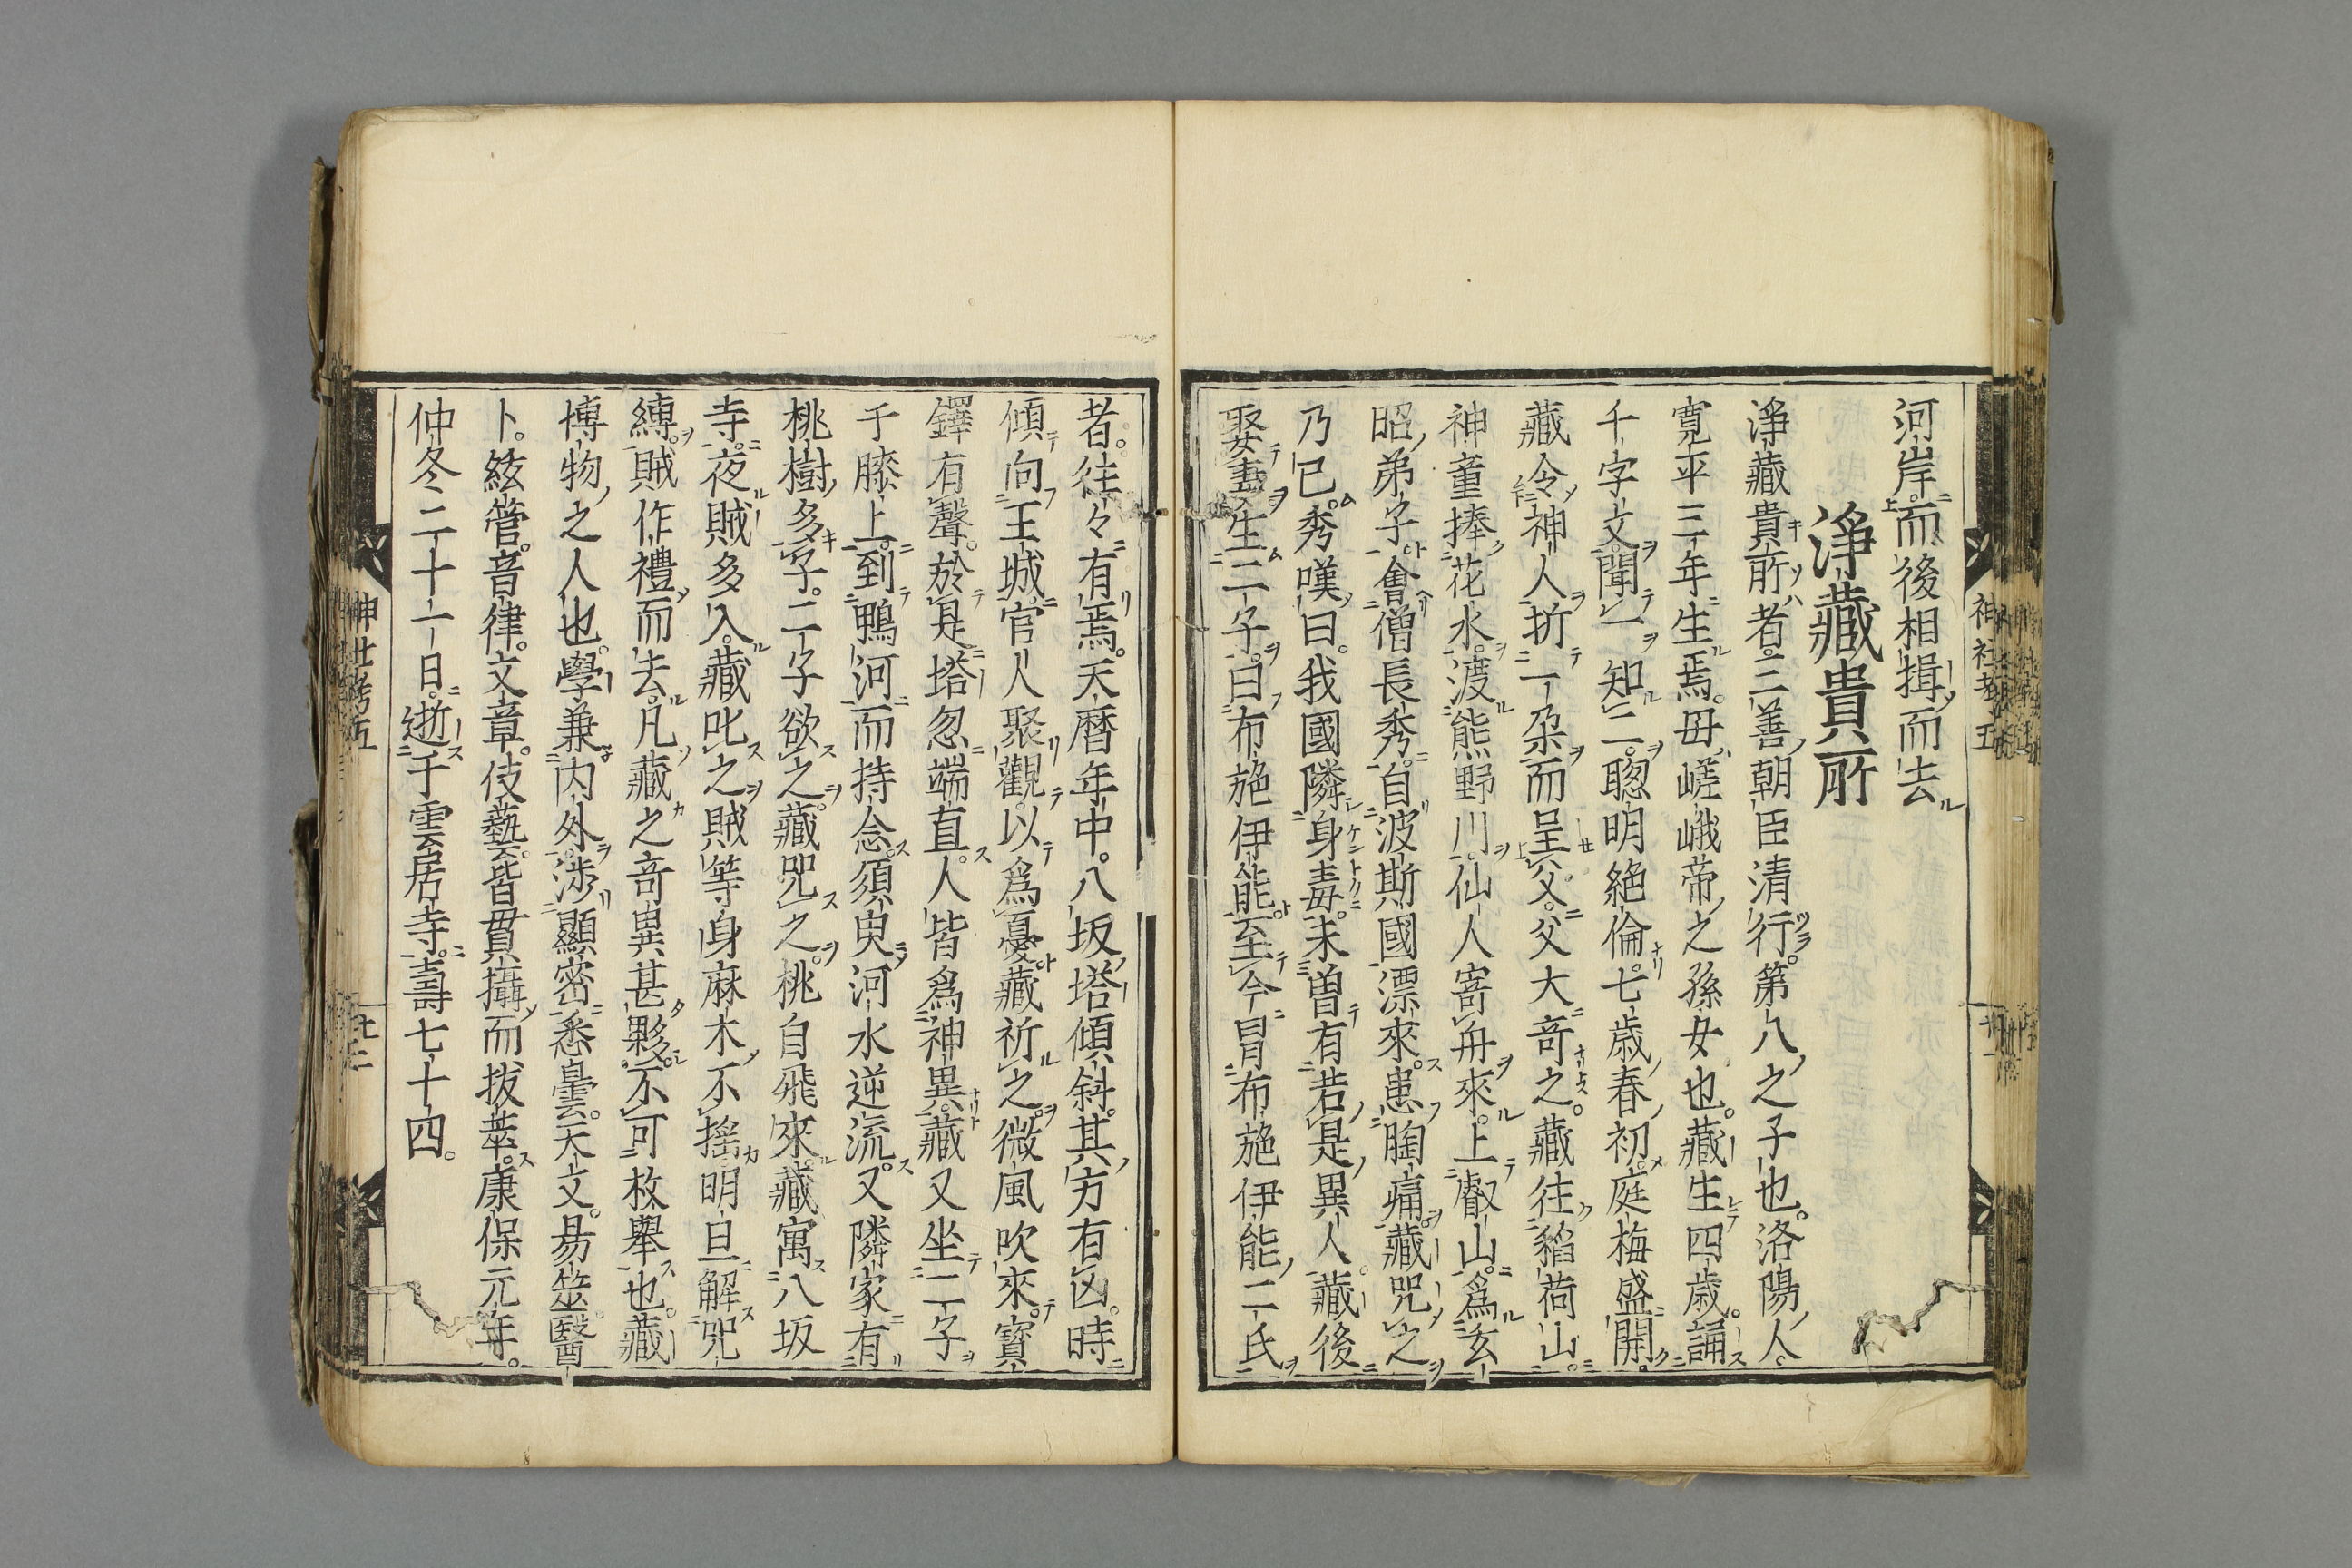 河岸而後相揖而去
淨藏貴所
淨藏貴所者三善朝臣清行第八之子也洛陽人
寛平三年生焉毋嵯峨帝之孫女也藏生四歲誦
千字文聞一知二聰明絶倫七歲春初庭梅盛開
藏令神人折一朶而呈父父大竒之藏往稻荷山
神童捧花水渡熊野川仙人寄舟來上叡山爲玄
昭弟子會僧長秀自波斯國漂來患胸痛藏咒之
乃已秀嘆曰我國隣身毒未曽有若是異人藏後
娶妻生二子曰布施伊能至今冐布施伊能二氏
者往々有焉天暦年中八坂塔傾斜其方有凶時
傾向王城官人聚觀以爲憂藏祈之微風吹來寳
鐸有聲於是塔忽端直人皆爲神異藏又坐二子
于膝上到鴨河而持念須臾河水逆流又隣家有
桃樹多子二子欲之藏咒之桃自飛來藏寓八坂
寺夜賊多入藏叱之賊等身麻木不揺明旦解咒
縛賊作禮而去凡藏之竒異甚夥不可枚舉也藏
博物之人也學兼内外渉顯密悉曇天文昜筮醫
卜絃管音律文章伎藝皆貫攝而拔萃康保元年
仲冬二十一日逝于雲居寺壽七十四
神社考五
神社考五